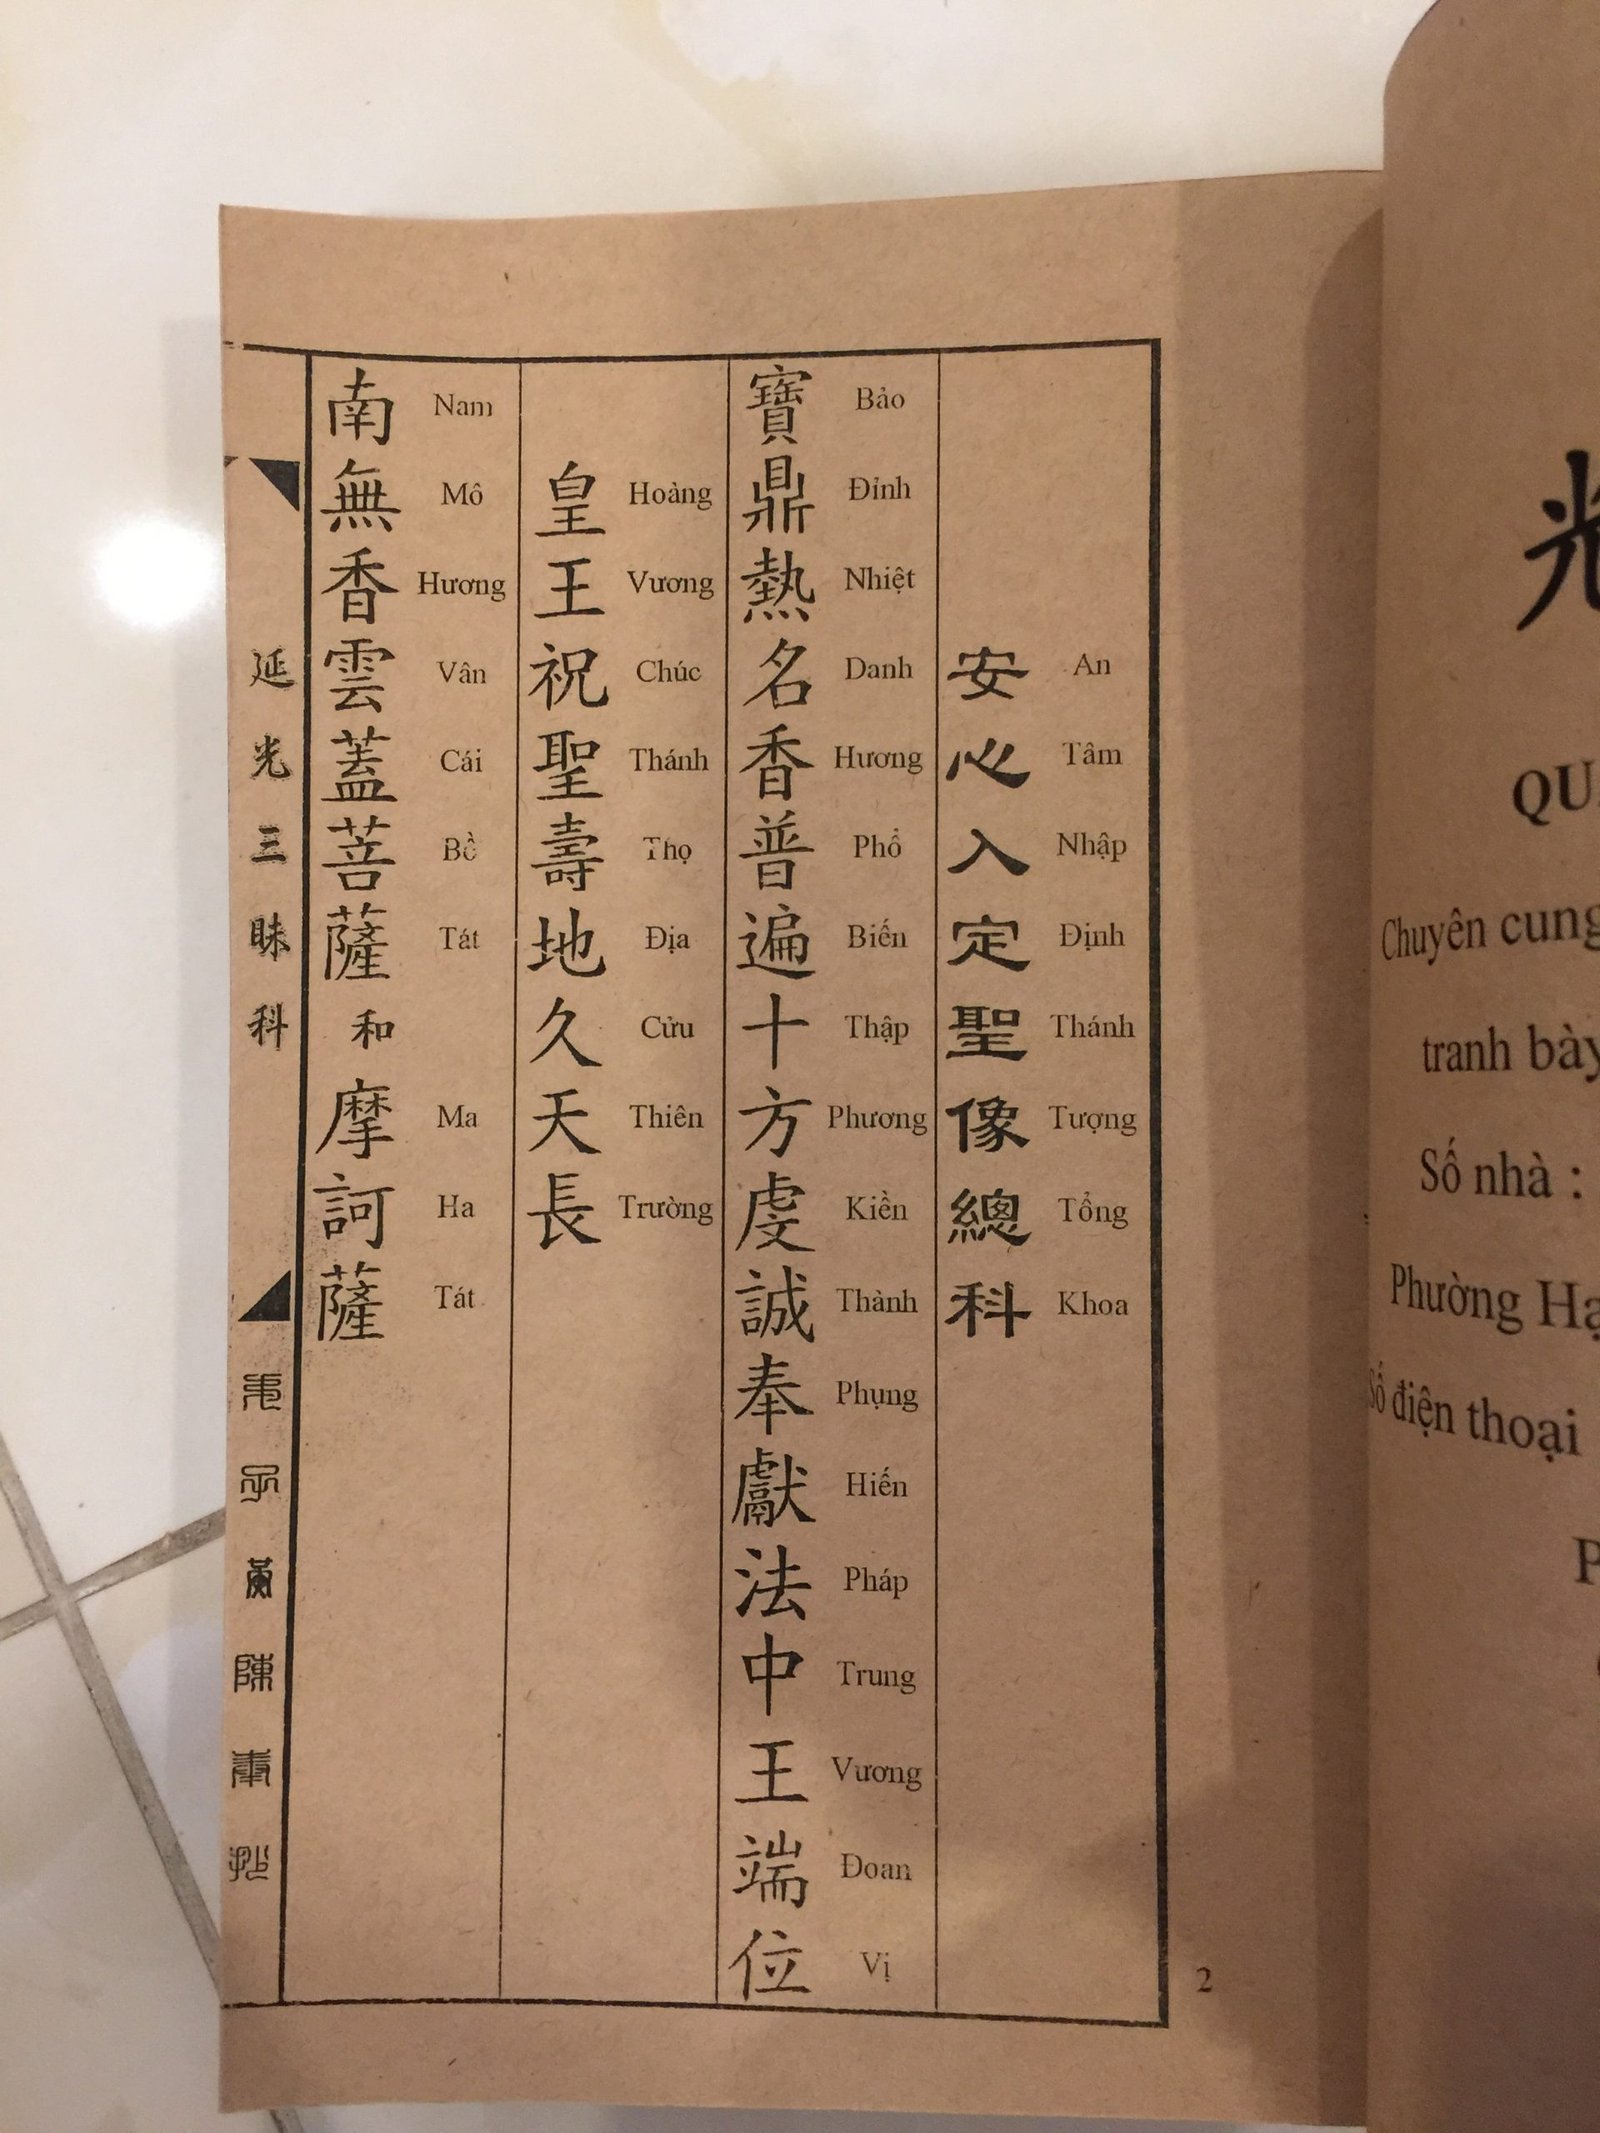 安心入定聖像總科
An Tâm Nhập Định Thánh Tượng Tổng Khoa
寶鼎熱名香普遍十方虔誠奉獻法中王端位
Bảo Đỉnh Nhiệt Danh Hương Phổ Biến Thập Phương Kiền Thành Phụng Hiến Pháp Trung Vương Đoan Vị
皇王祝聖壽地久天長
Hoàng Vương Chúc Thánh Thọ Địa Cửu Thiên Trường
南無香雲蓋菩薩和摩訶薩
Nam Mô Hương Vân Cái Bồ Tát Ma Ha Tát
延光三昧科
陳奉抄
2
光
Chuyên cung
tranh bày
Số nhà :
Phường Hạ
Số điện thoại